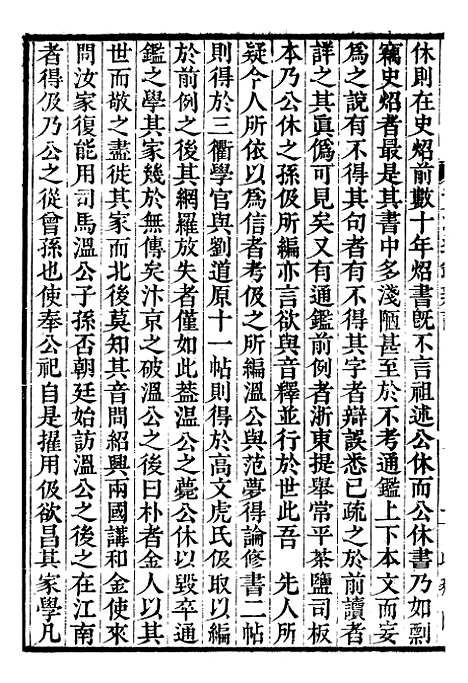 休則在史炤前數十年炤書旣不言祖述公休而公休書乃如剽
竊史炤者最是其書中多淺陋甚至於不考通鑑上下本文而妄
爲之說有不得其句者有不得其字者辯誤悉已疏之於前讀者
詳之其眞僞可見矣又有通鑑前例者浙東提舉常平茶鹽司板
本乃公休之孫伋所編亦言欲與音釋並行於世此吾　先人所
疑今人所依以爲信者考伋之所編溫公與范夢得論修書二帖
則得於三衢學官與劉道原十一帖則得於高文虎氏伋取以編
於前例之後其網羅放失者僅如此葢溫公之薨公休以毀卒通
鑑之學其家幾於無傳矣汴京之破溫公之後曰朴者金人以其
世而敬之盡徙其家而北後莫知其音問紹興兩國講和金使來
問汝家復能用司馬溫公子孫否朝廷始訪溫公之後之在江南
者得伋乃公之從曾孫也使奉公祀自是擢用伋欲昌其家學凡